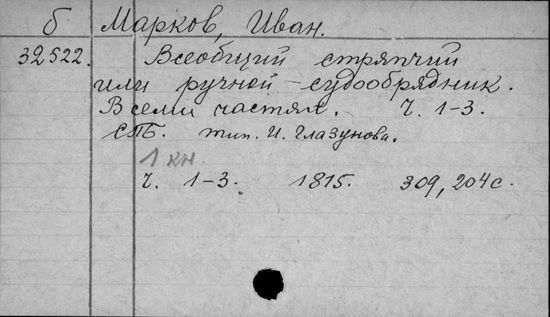 б Марков, Иван.
32522. Всеобщий стряпчий
или ручной - судообрядник.
В семи частях. Ч. 1-3.
СПБ. тип. И. Глазунова.
1 кн.
Ч. 1-3. 1815. 309, 204 с.